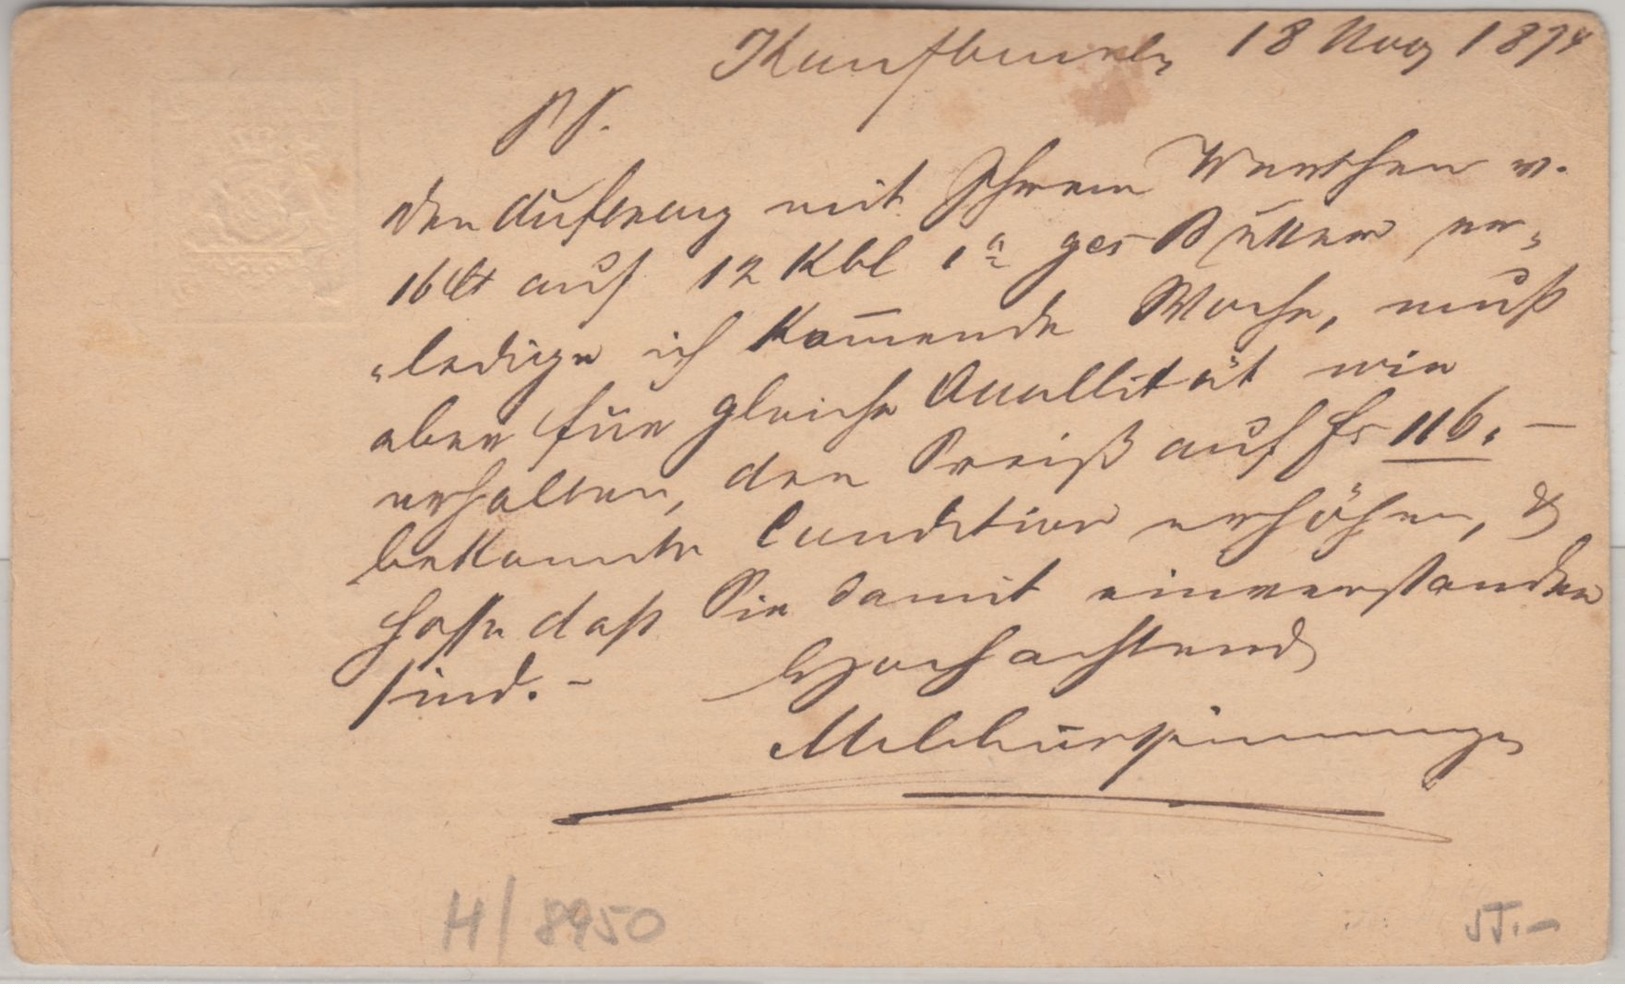 Kaufbeuren 18 Nov 1874
PP.
den Auftrag mit Ihrem Werthen v.
16 ct auf 12 Kbl 1a ges Butter er-
-ledige ich kom̄ende Woche, muß
aber für gleiche Quallität wie
erhalten, den Preiß auf fs 116.-
bekannte Condition erhöhen, &
hoffe daß Sie damit einverstanden
sind. - Hochachtend
H/8950